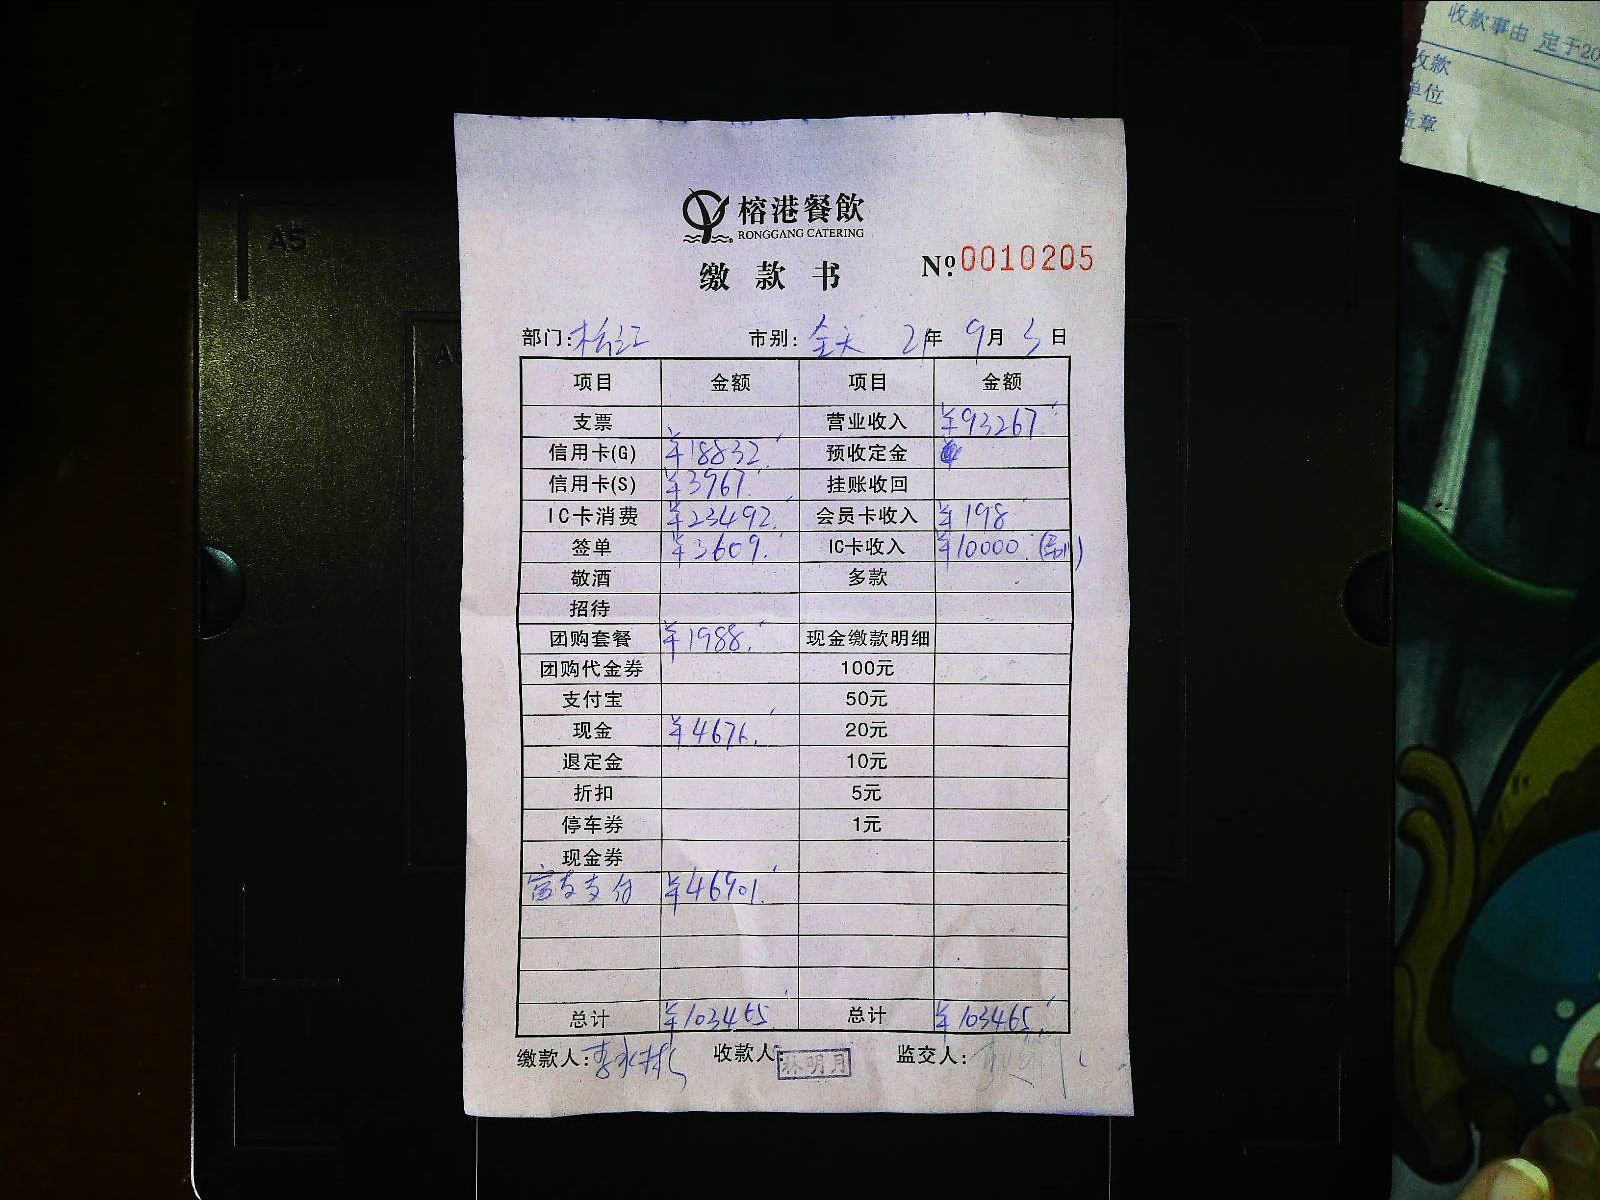 收款事由 定于20
收款
单位
盖章
A5
榕港餐飲
RONGGANG CATERING
缴款书
№:0010205
部门:松江 市别:全天 21年 9月 5日
项目 金额 项目 金额
支票 营业收入 ¥93267
信用卡(G) ¥18832 预收定金
信用卡(S) ¥3967 挂账收回
IC卡消费 ¥23492 会员卡收入 ¥198
签单 ¥3609. IC卡收入 ¥10000.
敬酒 多款
招待
团购套餐 ¥1988. 现金缴款明细
团购代金券 100元
支付宝 50元
现金 ¥4676. 20元
退定金 10元
折扣 5元
停车券 1元
现金券
富友支付 ¥46901.
总计 ¥103465 总计 ¥103465.
缴款人: 收款人:林明月 监交人: